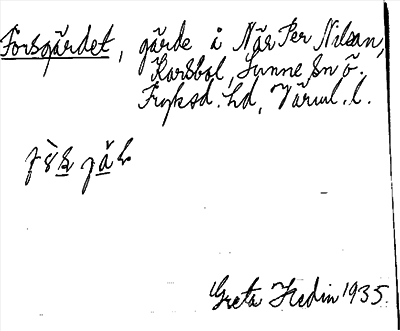 Forsgärdet, gärde å När Per Nilsan,
Karsbol, Sunne sn ö.
Fryksd. hd, Värml. l.
Greta Hedin 1935.